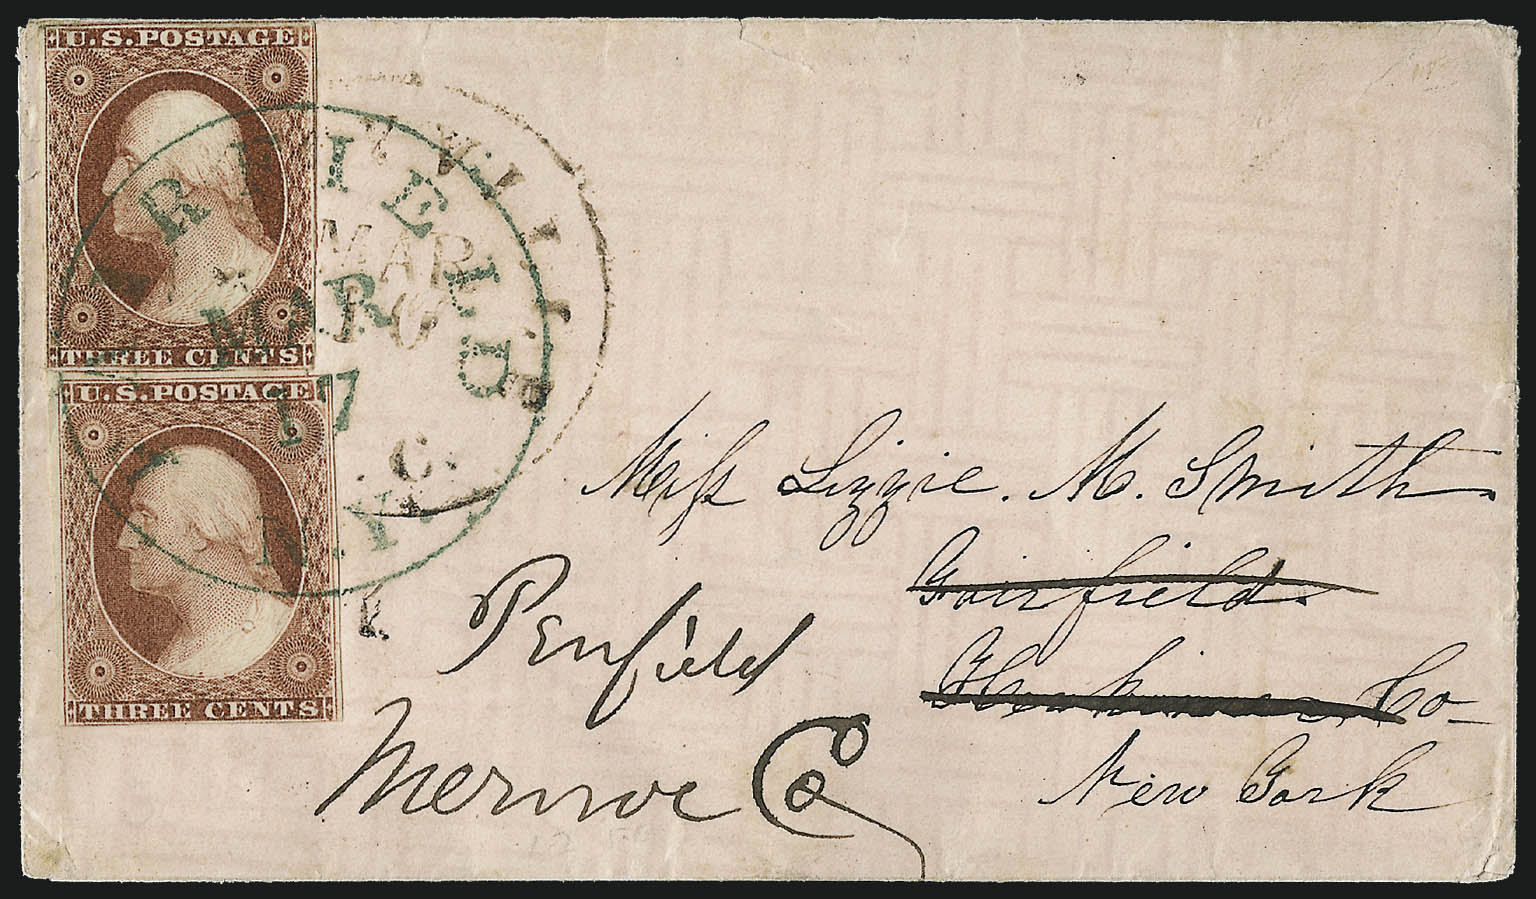 U.S.POSTAGE
THREE CENTS
U.S.POSTAGE
THREE CENTS
FAIRFIELD
MAR
17
N.Y.
MAR
C.
Miss Lizzie. M. Smith
Fairfield.
Herkimer Co-
New York
Penfield
Monroe Co